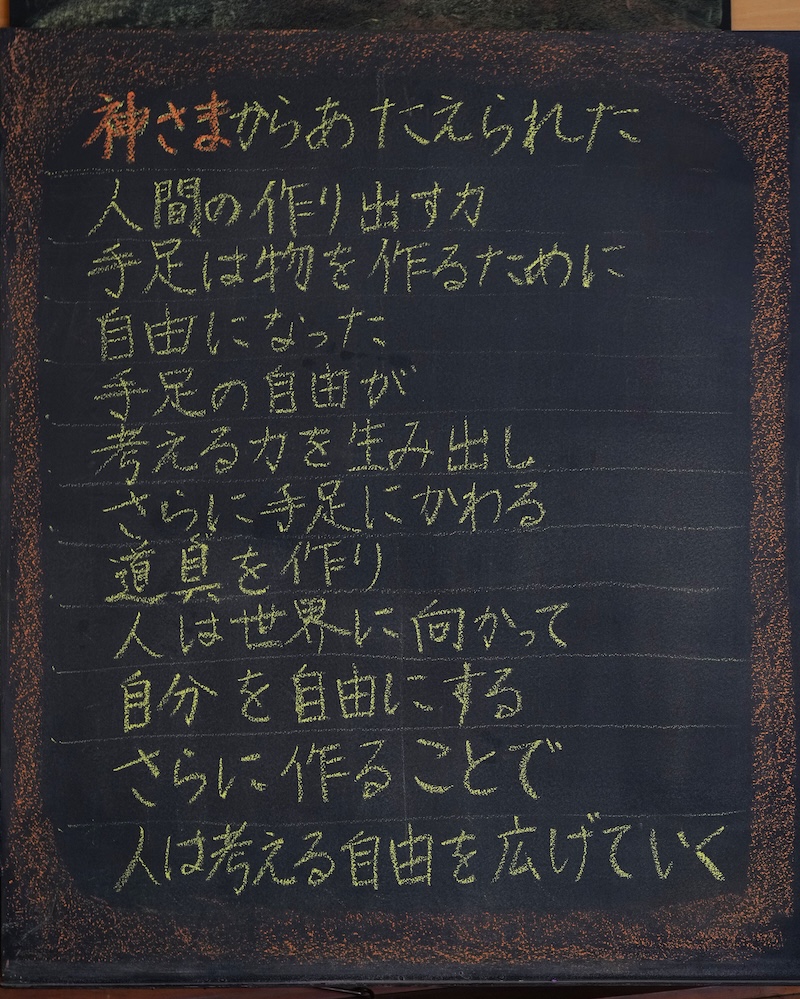 神さまからあたえられた
人間の作り出す力
手足は物を作るために
自由になった
手足の自由が
考える力を生み出し
さらに手足にかわる
道具を作り
人は世界に向かって
自分を自由にする
さらに作ることで
人は考える自由を広げていく